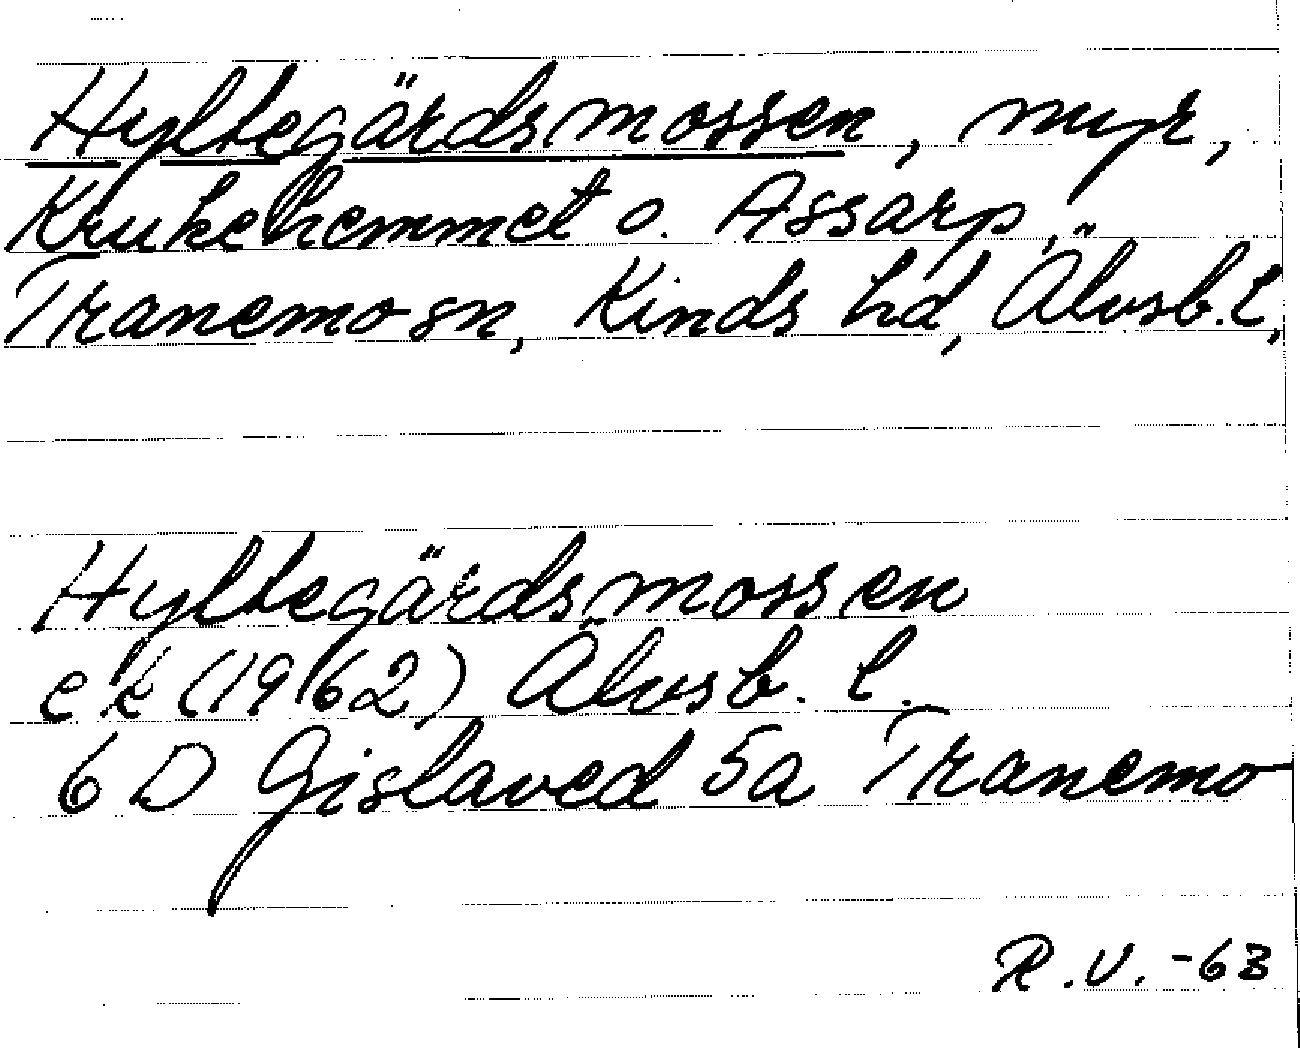 Hyltegärdsmossen, myr,
Krukehemmet o. Assarp,
Tranemo sn, Kinds hd, Älvsb. l,
Hyltegärdsmossen
ek (1962) Älvsb. l.
6 D Gislaved 5a Tranemo
R.V. -63